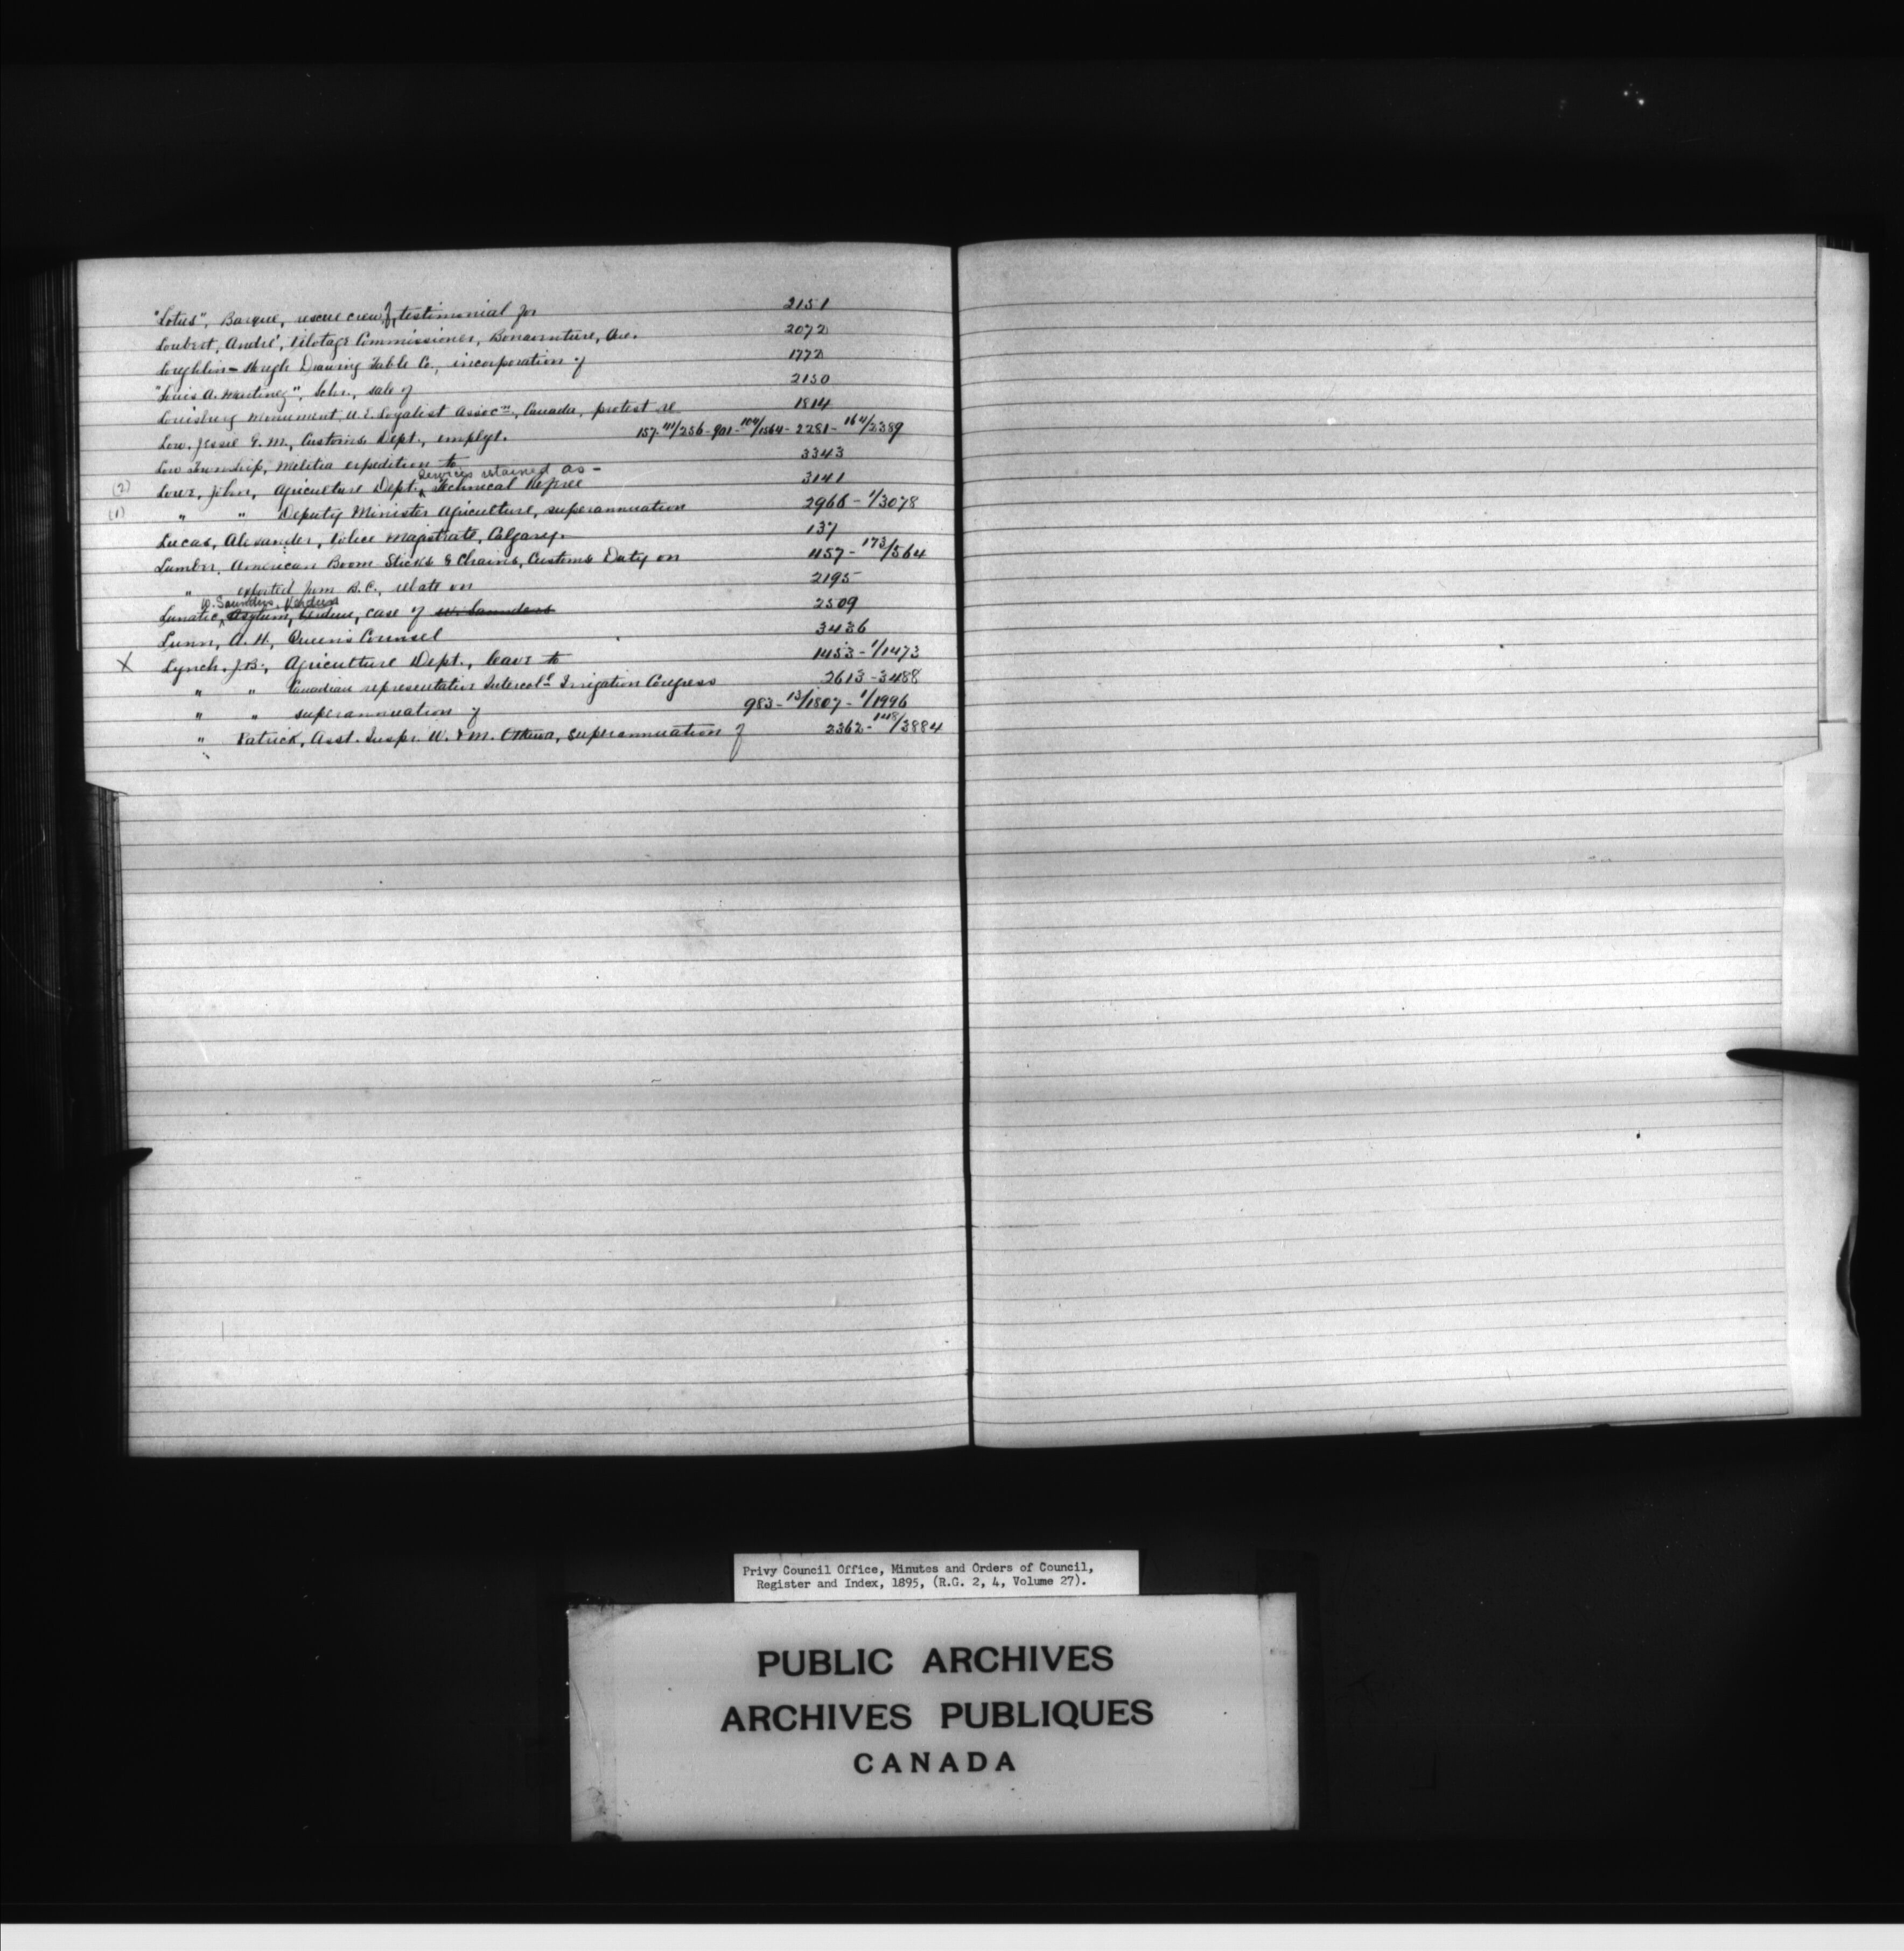 "Lotus", Barque, rescue crew of, testimonial for 2151
Loubert, André, Pilotage Commissioner, Bonaventure, Que. 2072
Loughlin-Hough Drawing Table Co., incorporation of 1772
"Louis A. Martinez", Schr., sale of 2130
Louisburg Monument, U.E. Loyalist Assocn, Canada, protest re 1814
Low, Jessie G. M., Customs Dept., emplyt. 157-411/256-901-104/1564-2281-164/2389
Low Township, Militia expedition to 3343
services retained as -
(2) Lowe, John, Agriculture Dept., Technical 3141
(1) " " Deputy Minister Agriculture, superannuation 2966-1/3078
Lucas, Alexander, Police Magistrate, Calgary. 137
Lumber, American Boom Sticks & Chains, Customs Duty on 457-173/564
" exported from B.C., rebate on 2195
W. Saunders, Verdun
Lunatic, Asylum, Verdun, case of W. Saunders 2509
Lunn, A. H., Queen's Counsel 3436
X Lynch, J. B., Agriculture Dept., leave to 1453-1/1473
" " Canadian representative Intercol. Irrigation Congress 2613-3488
" " superannuation of 983-13/1807-1/1996
" Patrick, Asst. Inspr. W. & M. Ottawa, superannuation of 2362-148/3884
Privy Council Office, Minutes and Orders of Council,
Register and Index, 1895, (R.G. 2, 4, Volume 27).
PUBLIC ARCHIVES
ARCHIVES PUBLIQUES
CANADA